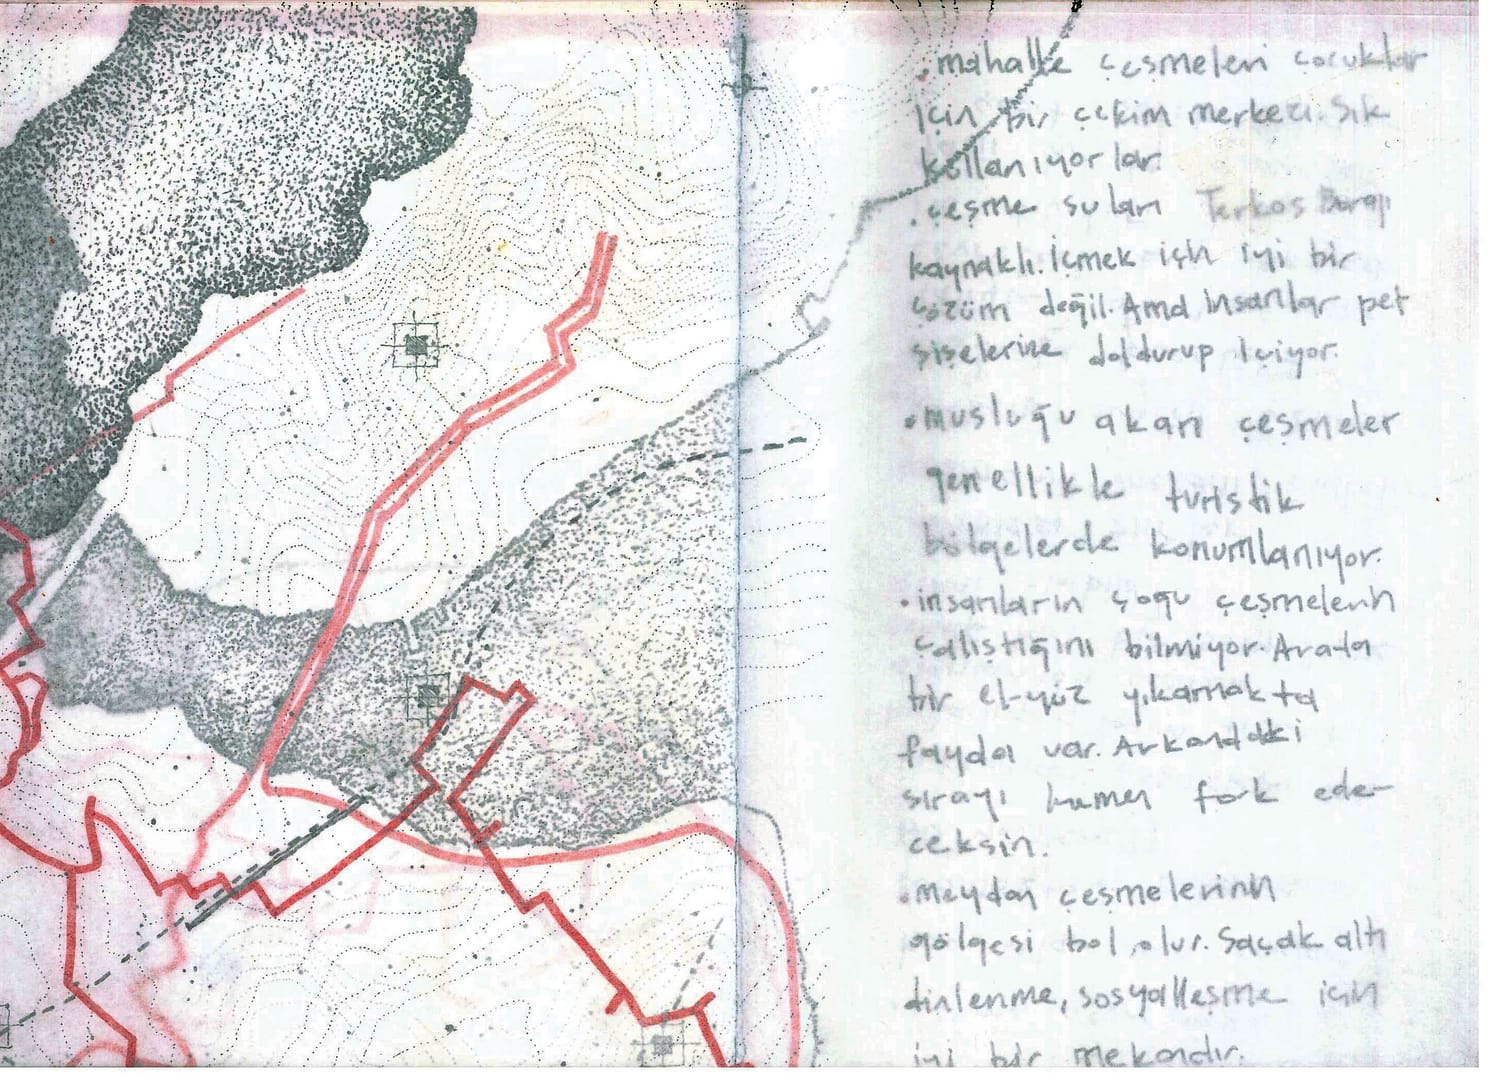 . mahalle çeşmeleri çocuklar
için bir çekim merkezi. Sık
kullanıyorlar.
. çeşme suları Terkos Barajı
kaynaklı. İçmek için iyi bir
çözüm değil. Ama insanlar pet
şişelerine doldurup içiyor.
. musluğu akan çeşmeler
genellikle turistik
bölgelerde konumlanıyor.
. insanların çoğu çeşmelerin
çalıştığını bilmiyor. Arada
bir el-yüz yıkamakta
fayda var. Arkandaki
sırayı hemen fark ede-
ceksin.
. meydan çeşmelerinin
gölgesi bol olur. Saçak altı
dinlenme, sosyalleşme için
iyi bir mekandır.